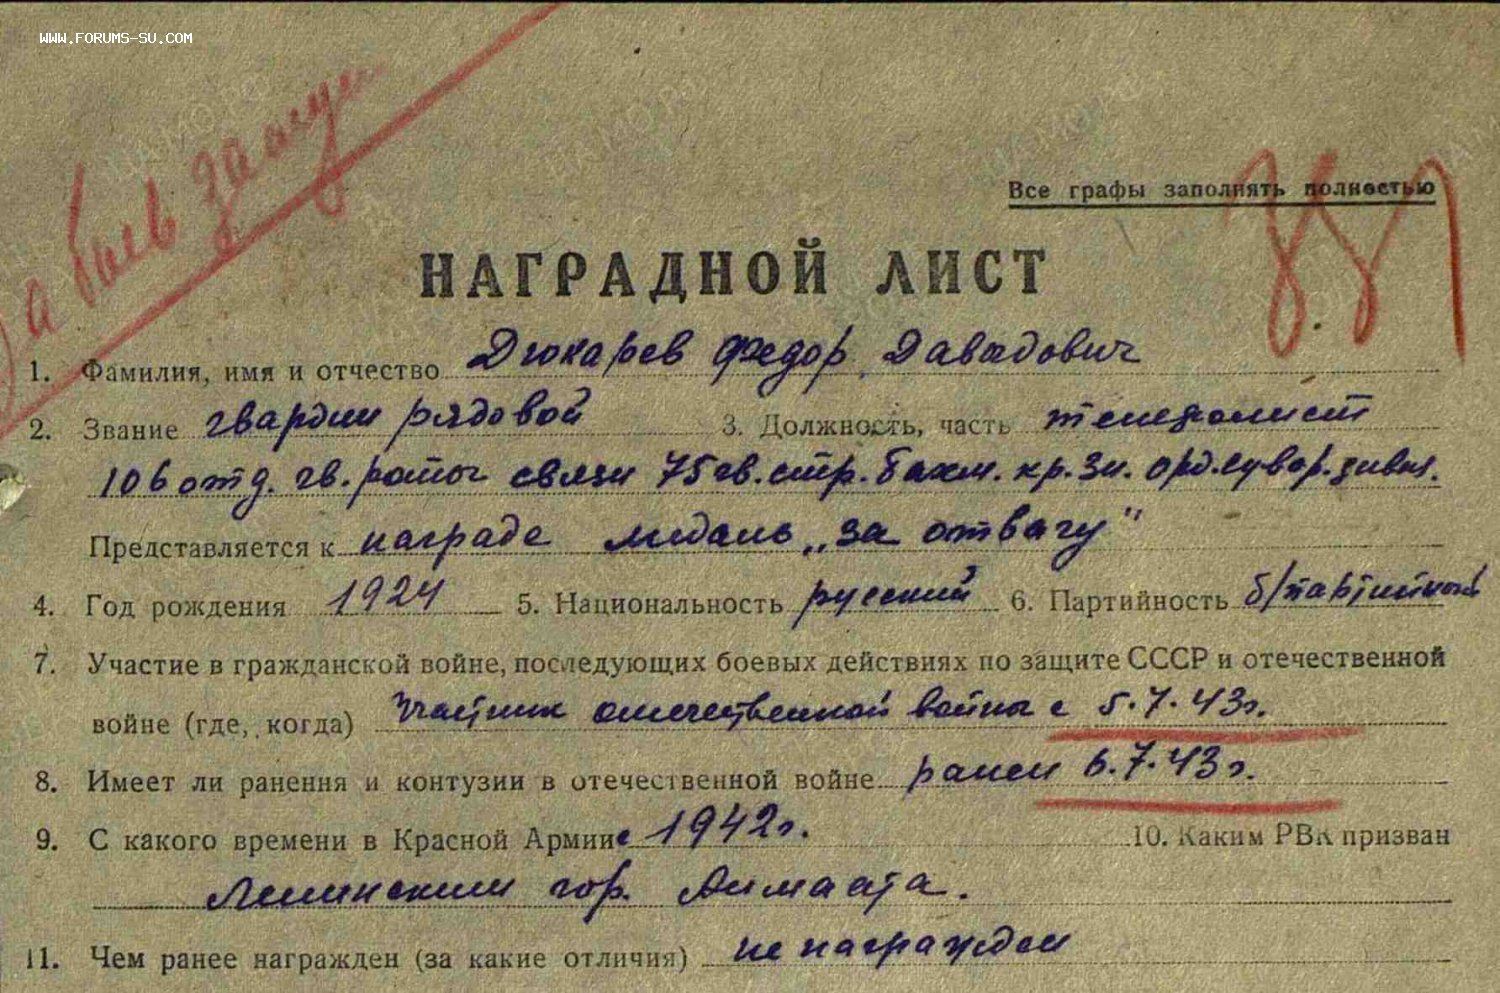 WWW.FORUMS-SU.COM
За боев заслуги
Все графы заполнять полностью
НАГРАДНОЙ ЛИСТ
1. Фамилия, имя и отчество Дюкарев Федор Давыдович
2. Звание гвардии рядовой 3. Должность, часть телефонист
106 отд. гв. роты связи 75 гв. стр. бахм. кр. зн. орд. сувор. дивиз.
Представляется к награде медаль „за отвагу"
4. Год рождения 1924 5. Национальность русский 6. Партийность б/партийный
7. Участие в гражданской войне, последующих боевых действиях по защите СССР и отечественной
войне (где, когда) Участник отечественной войны с 5.7.43г.
8. Имеет ли ранения и контузии в отечественной войне ранен 6.7.43г.
9. С какого времени в Красной Армии с 1942г. 10. Каким РВК призван
Ленинским гор. Алма ата.
11. Чем ранее награжден (за какие отличия) не награжден